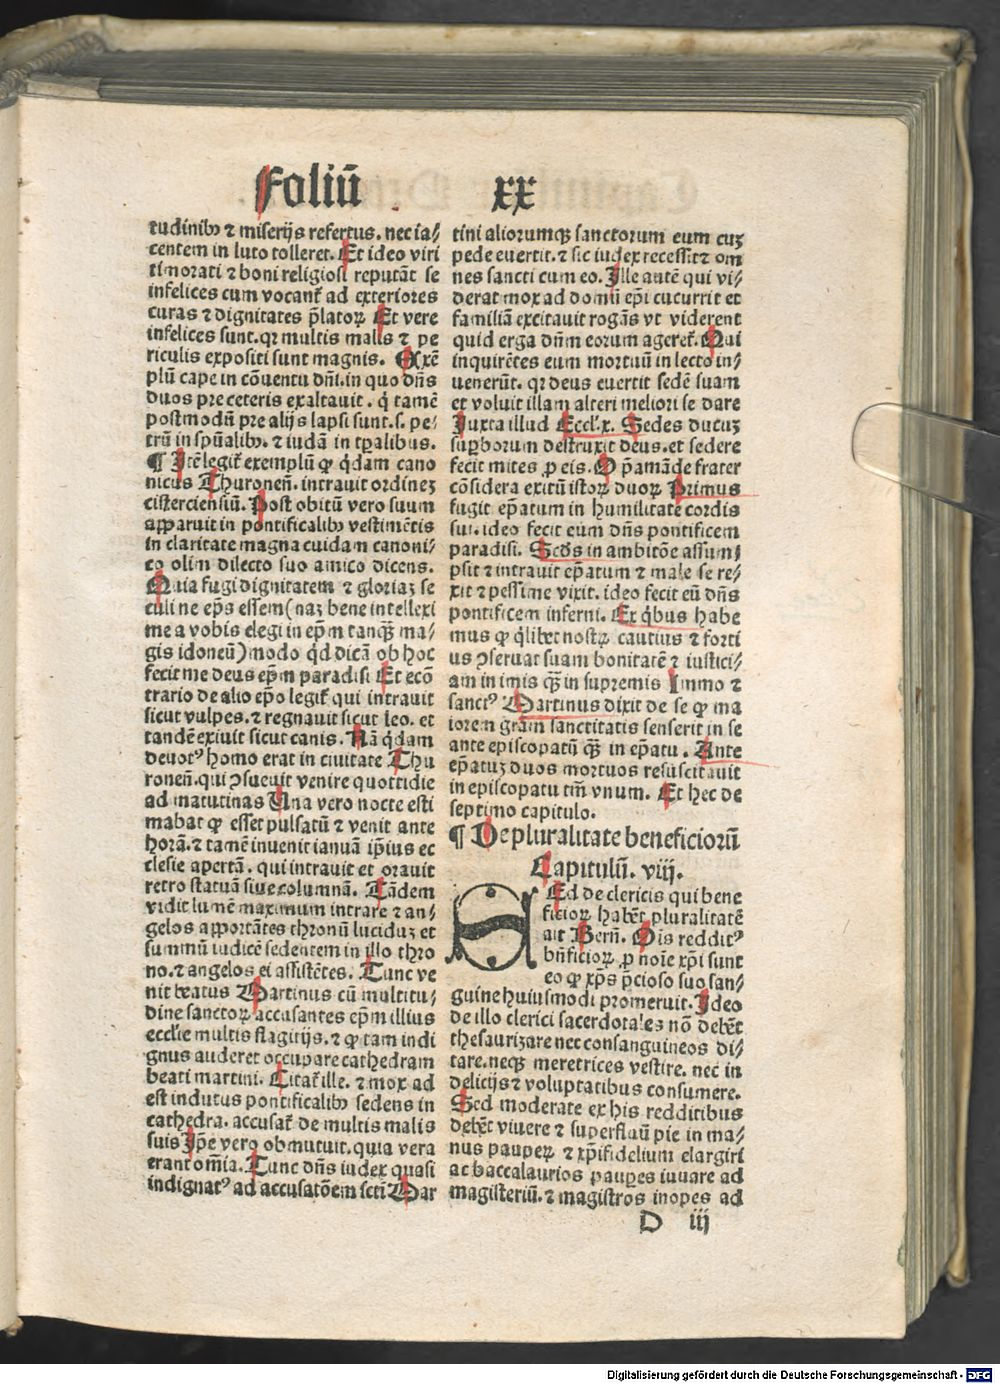 Foliū XX
tudinibꝫ ⁊ miserijs refertus. nec ia⸗
centem in luto tolleret. Et ideo viri
timorati ⁊ boni religiosi reputāt se
infelices cum vocant᷑ ad exteriores
curas ⁊ dignitates p̄latoꝝ Et vere
infelices sunt. qꝛ multis malis ⁊ pe
riculis expositi sunt magnis. Exē
plū cape in cōuentu dn̄i. in quo dn̄s
duos pre ceteris exaltauit. q̇ tamē
postmodū pre alijs lapsi sunt. s. pe⸗
trū in spūalibꝫ. ⁊ iudā in tꝑalibus.
¶ Itē legit᷑ exemplū ꝙ q̇dam cano
nicus Thuronen̄. intrauit ordineꝫ
cisterciensiū. Post obitū vero suum
apparuit in pontificalibꝫ vestimētis
in claritate magna cuidam canoni⸗
co olim dilecto suo amico dicens.
Quia fugi dignitatem ⁊ gloriaꝫ se
culi ne ep̄s essem (naꝫ bene intellexi
me a vobis elegi in ep̄m tanqꝫ̄ ma⸗
gis idoneū) modo qd̓ dicā ob hoc
fecit me deus ep̄m paradisi Et ecō
trario de alio ep̄o legit᷑ qui intrauit
sicut vulpes. ⁊ regnauit sicut leo. et
tandē exiuit sicut canis. Nā q̇dam
deuotꝰ homo erat in ciuitate Thu
ronen̄. qui ꝯsueuit venire quottidie
ad matutinas Una vero nocte esti
mabat ꝙ esset pulsatū ⁊ venit ante
horā. ⁊ tamē inuenit ianuā ip̄ius ec
clesie apertā. qui intrauit et orauit
retro statuā siue columnā. Tādem
vidit lumē maximum intrare ⁊ an⸗
gelos apportātes thronū luciduꝫ et
summū iudicē sedentem in illo thro
no. ⁊ angelos ei assistētes. Tunc ve
nit beatus Martinus cū multitu⸗
dine sanctoꝝ accusantes ep̄m illius
ecclie multis flagitijs. ⁊ ꝙ tam indi
gnus auderet occupare cathedram
beati martini. Citat᷑ ille. ⁊ mox ad
est indutus pontificalibꝫ sedens in
cathedra. accusat᷑ de multis malis
suis Ip̄e vero obmutuit. quia vera
erant om̄ia. Tunc dn̄s iudex quasi
indignatꝰ ad accusatōem scti̅ Mar
tini aliorumqꝫ sanctorum eum cuꝫ
pede euertit. ⁊ sic iudex recessit ⁊ om
nes sancti cum eo. Ille autē qui vi⸗
derat mox ad domū ep̄i cucurrit et
familiā excitauit rogās vt viderent
quid erga dn̄m eorum ageret᷑. Qui
inquirētes eum mortuū in lecto in⸗
uenerūt. qꝛ deus euertit sedē suam
et voluit illam alteri meliori se dare
Juxta illud Eccl̓. x. Sedes ducuꝫ
suꝑborum destruxit deus. et sedere
fecit mites ꝓ eis. O p̄amāde frater
cōsidera exitū istoꝝ duoꝝ Primus
fugit ep̄atum in humilitate cordis
sui. ideo fecit eum dn̄s pontificem
paradisi. Scd̓s in ambitōe assum⸗
psit ⁊ intrauit ep̄atum ⁊ male se re⸗
xit ⁊ pessime vixit. ideo fecit eū dn̄s
pontificem inferni. Ex q̇bus habe
mus ꝙ q̇libet nostꝝ cautius ⁊ forti
us ꝯseruat suam bonitatē ⁊ iustici⸗
am in imis qꝫ̄ in supremis Immo ⁊
sanctꝰ Martinus dixit de se ꝙ ma
iorem gram̄ sanctitatis senserit in se
ante episcopatū qꝫ̄ in ep̄atu. Ante
ep̄atuꝫ duos mortuos resuscitauit
in episcopatu tm̄ vnum. Et hec de
septimo capitulo.
¶ De pluralitate beneficiorū
Capitulū. viij.
SEd de clericis qui bene
ficioꝝ habēt pluralitatē
ait Bern̄. Ois redditꝰ
bn̄ficioꝝ ꝓ noīe xp̄i sunt
eo ꝙ xp̄s p̄cioso suo san⸗
guine huiusmodi promeruit. Ideo
de illo clerici sacerdotales nō debēt
thesaurizare nec consanguineos di⸗
tare. neqꝫ meretrices vestire. nec in
delicijs ⁊ voluptatibus consumere.
Sed moderate ex his redditibus
debēt viuere ⁊ superfluū pie in ma⸗
nus pauperꝝ ⁊ xp̄ifidelium elargiri
ac baccalaurios paupes iuuare ad
magisteriū. ⁊ magistros inopes ad
D iij
Digitalisierung gefördert durch die Deutsche Forschungsgemeinschaft - DFG